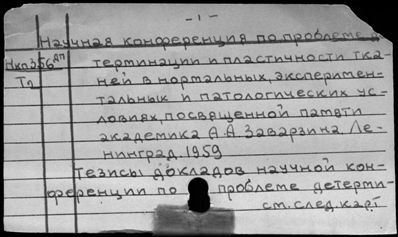 - 1 -
Научная конференция по проблеме
Нкп356 дп терминации и пластичности тка-
Тд ней в нормальных, эксперимен-
тальных и патологических ус-
ловиях, посвященной памяти
академика А.А. Заварзина Ле-
нинград. 1959
Тезисы докладов научной кон-
ференции по проблеме детерми-
см. след. карт